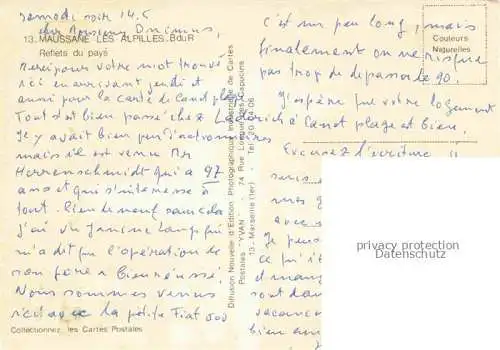 samedi soir 14.5
cher Monsieur
13. MAUSSANE LES ALPILLES. B.d.R
Reflets du pays
Merci pour votre mot trouvé
ici en arrivant jeudi et
aussi pour la carte de Canet plage
Tout s'est bien passé chez
Il y avait bien peu
mais il est venu Mr
Herrenschmidt qui a 97
ans et qui s'intéresse à
tout. Rien de neuf sauf que
j'ai vu qui
m'a dit que l'opération de
son père a bien réussi.
Nous sommes venus
ici avec la petite Fiat 500
Collectionnez les Cartes Postales
Diffusion Nouvelle d'Edition Photographique Industrielle de Cartes
Postales "YVAN" - 74 Rue Longue des Capucins
13 - Marseille (1er) - Tél.
c'est un peu long, mais
finalement on ne risque
pas trop de dépasser le 90.
J'espère que votre logement
à Canet plage est bien.
Excusez l'écriture !!
Couleurs
Naturelles
avec
Je
ce qu'i
et mang
sont dan
vacance
bien au
privacy protection
Datenschutz